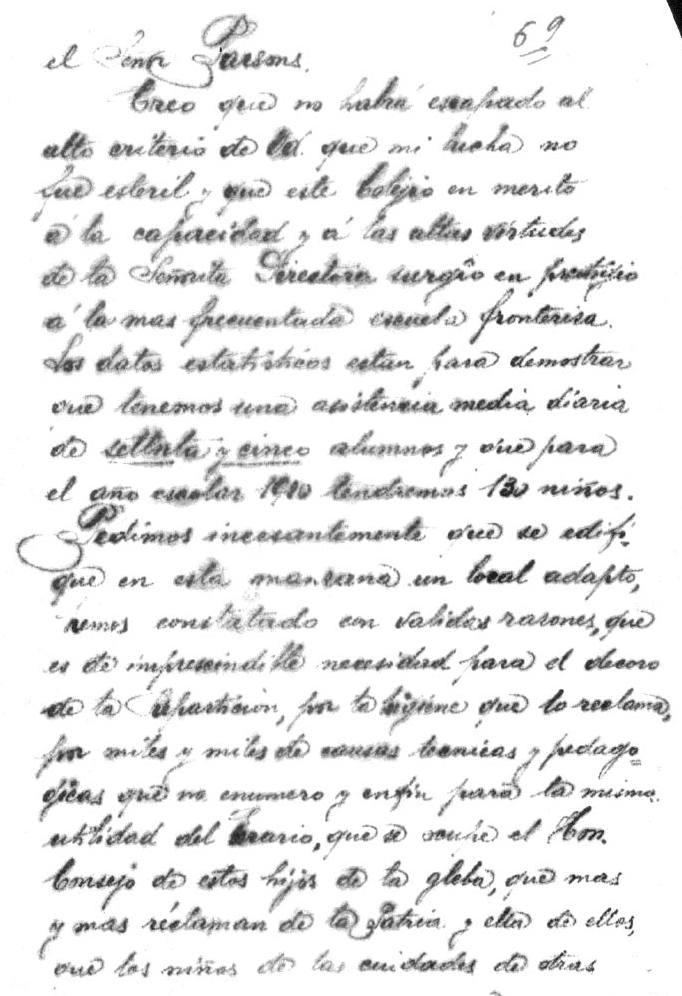 69
el Señor Parsons.
Creo que no habrá escapado al
alto criterio de Ud. que mi lucha no
fue esteril y que este Colejio en merito
á la capacidad y á las altas virtudes
de la Señorita Directora surgió en
á la mas frecuentada escuela fronterisa.
Los datos estatisticos estan para demostrar
que tenemos una asistencia media diaria
de setenta y cinco alumnos y que para
el año escolar 1910 tendremos 130 niños.
Pedimos incesantemente que se edifi-
que en esta manzana un local adapto,
hemos constatado con validas rasones, que
es de imprescindible necesidad para el decoro
de la Repartición, por la higiene que lo reclama,
por miles y miles de causas tecnicas y pedago=
gicas que no enumero y enfin para la misma
utilidad del Erario, que se ocupe el Hon.
Consejo de estos hijos de la gleba, que mas
y mas réclaman de la Patria y ella de ellos,
que los niños de las ciudades de otras